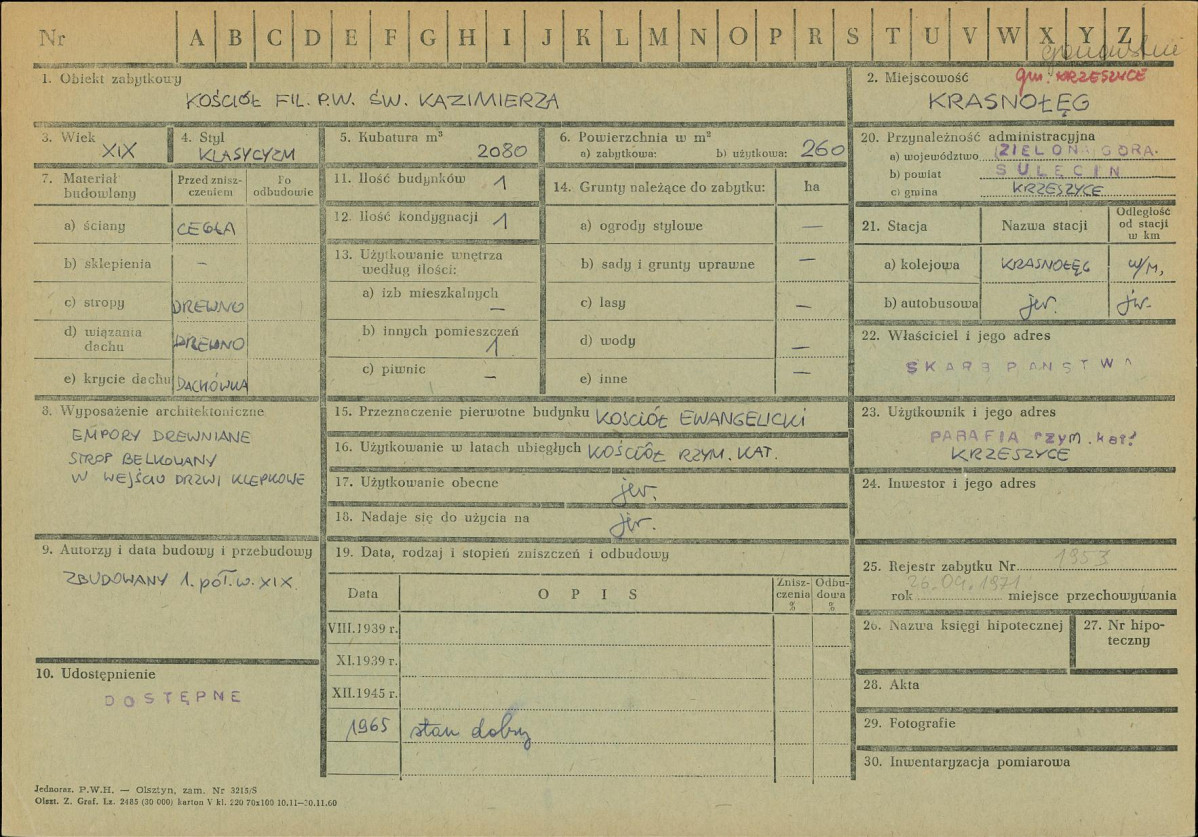 Nr A B C D E F G H I J K L M N O P R S T U V W X Y Z
1. Obiekt zabytkowy
KOŚCIÓŁ FIL. P.W. ŚW. KAZIMIERZA
2. Miejscowość gm. KRZESZYCE
KRASNOŁĘG
3. Wiek
XIX
4. Styl
KLASYCYZM
5. Kubatura m³
2080
6. Powierzchnia w m²
a) zabytkowa: b) użytkowa: 260
7. Materiał budowlany
Przed zniszczeniem
Po odbudowie
a) ściany CEGŁA
b) sklepienia –
c) stropy DREWNO
d) wiązania dachu DREWNO
e) krycie dachu DACHÓWKA
8. Wyposażenie architektoniczne
EMPORY DREWNIANE
STROP BELKOWANY
W WEJŚCIU DRZWI KLEPKOWE
9. Autorzy i data budowy i przebudowy
ZBUDOWANY 1. poł. w. XIX.
10. Udostępnienie
DOSTĘPNE
11. Ilość budynków 1
12. Ilość kondygnacji 1
13. Użytkowanie wnętrza
według ilości:
a) izb mieszkalnych –
b) innych pomieszczeń 1
c) piwnic –
14. Grunty należące do zabytku: ha
a) ogrody stylowe –
b) sady i grunty uprawne –
c) lasy –
d) wody –
e) inne –
15. Przeznaczenie pierwotne budynku KOŚCIÓŁ EWANGELICKI
16. Użytkowanie w latach ubiegłych KOŚCIÓŁ RZYM. KAT.
17. Użytkowanie obecne jw.
18. Nadaje się do użycia na jw.
19. Data, rodzaj i stopień zniszczeń i odbudowy
Data OPIS Zniszczenia % Odbudowa %
VIII.1939 r.
XI.1939 r.
XII.1945 r.
1965 stan dobry
20. Przynależność administracyjna
a) województwo ZIELONA GÓRA.
b) powiat SULĘCIN
c) gmina KRZESZYCE
21. Stacja Nazwa stacji Odległość od stacji w km
a) kolejowa KRASNOŁĘG w/m,
b) autobusowa jw. jw.
22. Właściciel i jego adres
SKARB PAŃSTWA
23. Użytkownik i jego adres
PARAFIA rzym. kat.
KRZESZYCE
24. Inwestor i jego adres
25. Rejestr zabytku Nr 1953
rok 26.04.1971 miejsce przechowywania
26. Nazwa księgi hipotecznej
27. Nr hipoteczny
28. Akta
29. Fotografie
30. Inwentaryzacja pomiarowa
Jednoraz. P.W.H. — Olsztyn, zam. Nr 3215/S
Olszt. Z. Graf. Lz. 2485 (30 000) karton V kl. 220 70x100 10.11—30.11.60